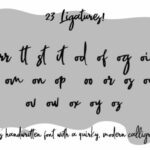 23 Ligatures!
rr tt st it od of og oi
om on op oo or os ov
ov ow ox oy os
s handwritten font with a quirky, modern calligr